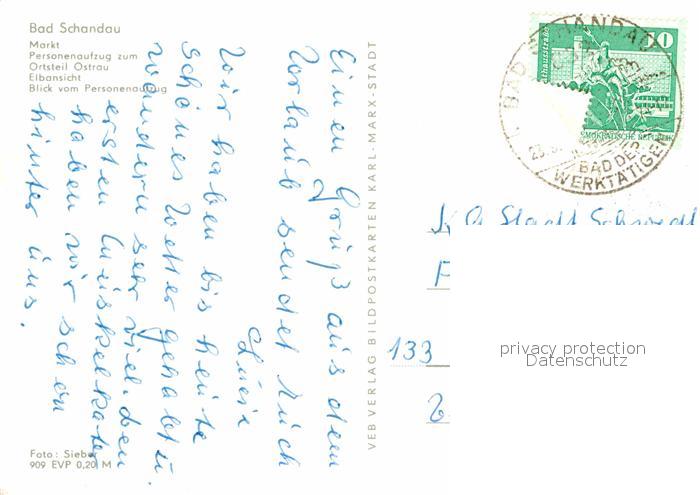 Bad Schandau
Markt
Personenaufzug zum
Ortsteil Ostrau
Elbansicht
Blick vom Personenaufzug
Einen Gruß aus dem
Urlaub sendet Euch
Luise
Wir haben bis heute
schönes Wetter gehabt u.
wandern sehr viel. den
ersten Muskelkater
haben wir schon
hinter uns.
Foto: Sieber
909 EVP 0,20 M
VEB VERLAG BILDPOSTKARTEN KARL-MARX-STADT
BAD SCHANDAU
BAD DER
WERKTÄTIGEN
10
MOKRATISCHE REPUBLIK
Stadt Schwedt
133
privacy protection
Datenschutz